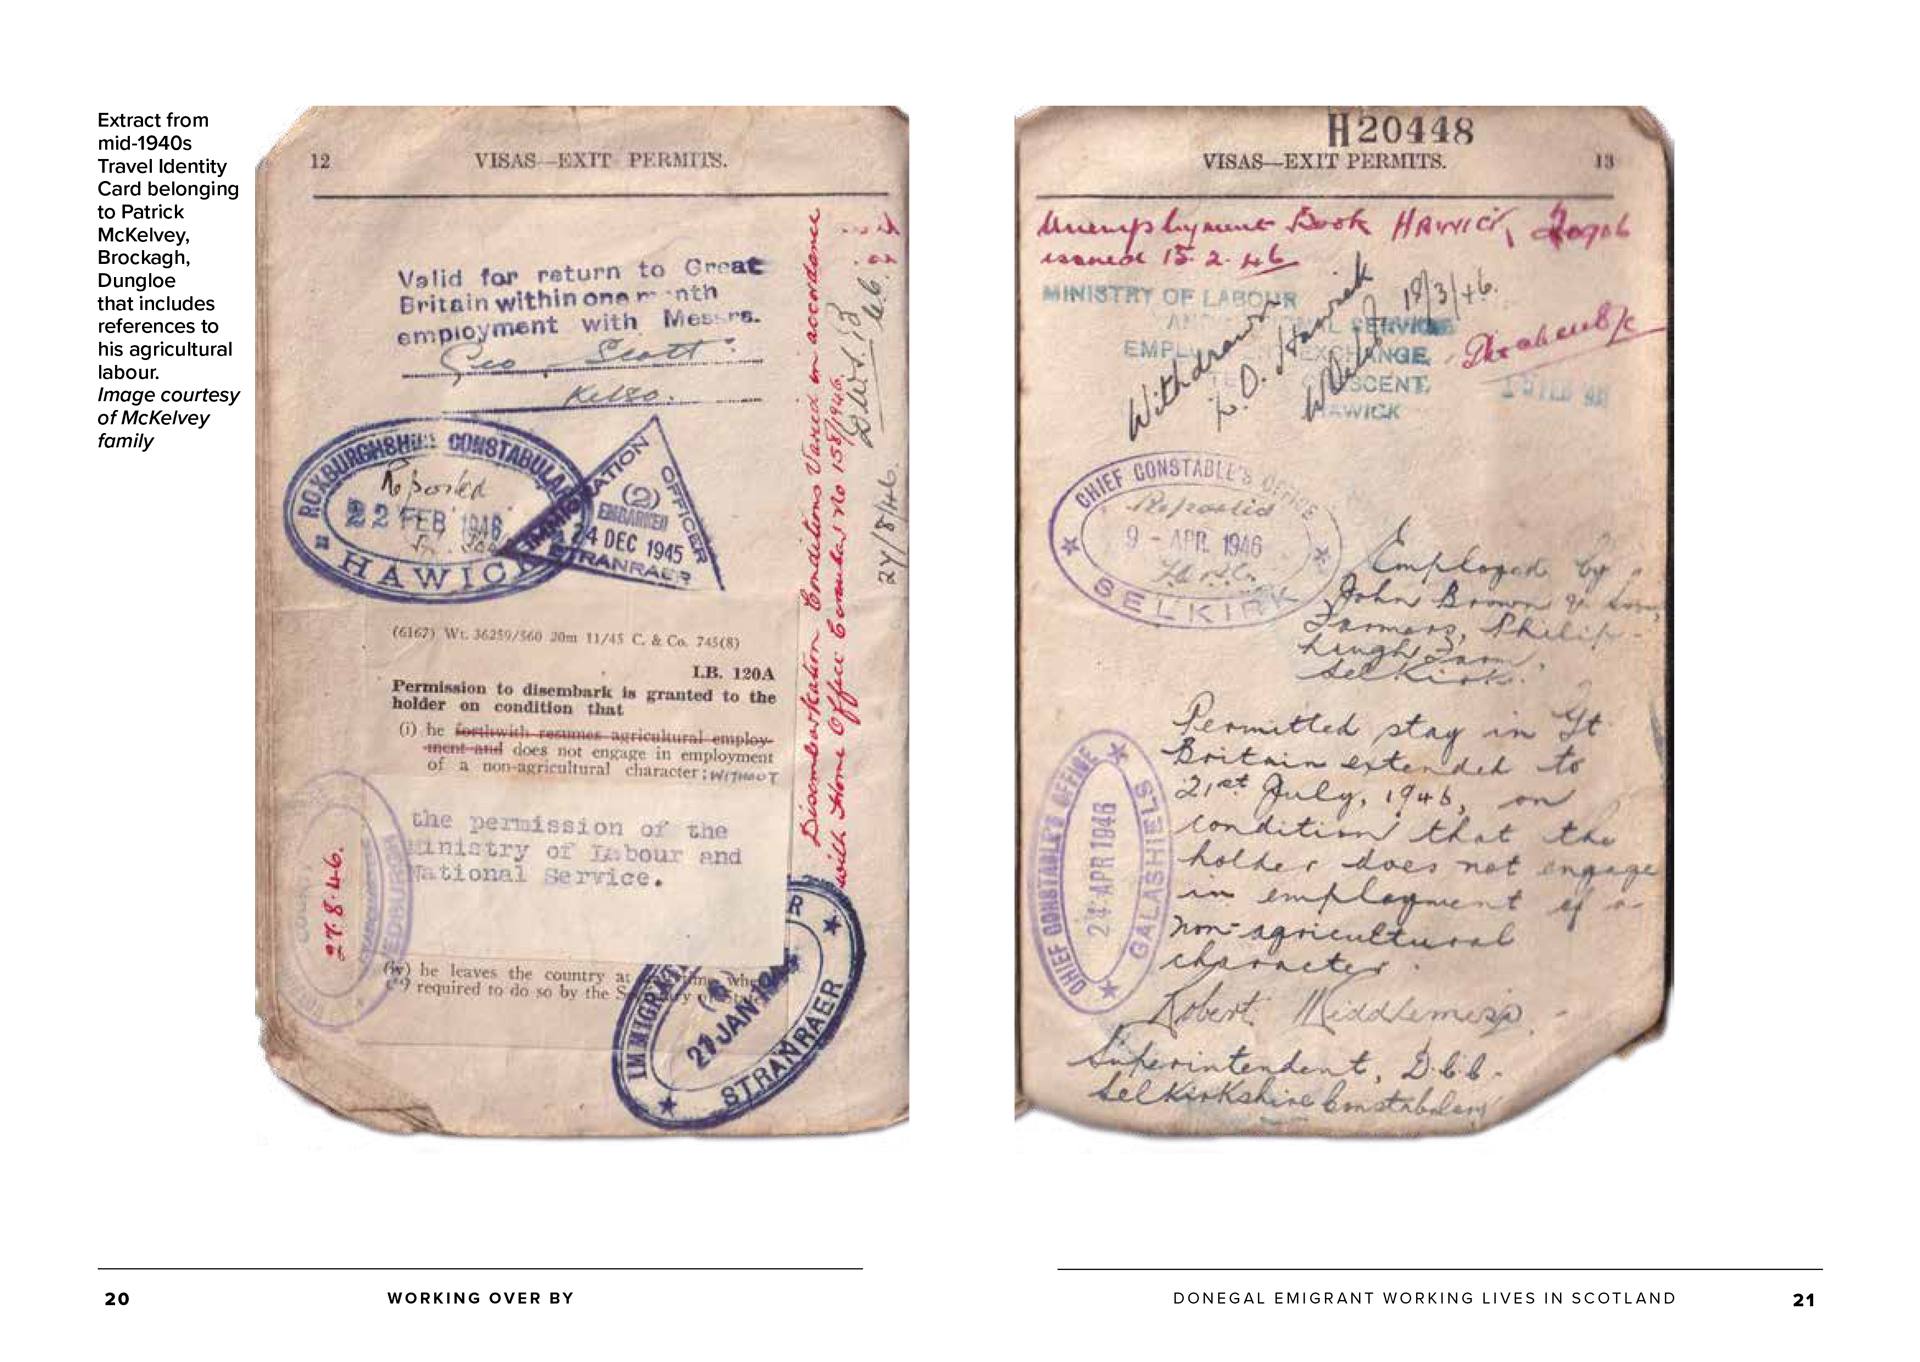 Extract from
mid-1940s
Travel Identity
Card belonging
to Patrick
McKelvey,
Brockagh,
Dungloe
that includes
references to
his agricultural
labour.
Image courtesy
of McKelvey
family
12 VISAS—EXIT PERMITS.
Valid for return to Great
Britain within one month
employment with Messrs.
Geo. Scott
Kelso.
ROXBURGHSHIRE CONSTABULARY
Reported
22 FEB 1946
HAWICK
IMMIGRATION OFFICER
(2)
EMBARKED
24 DEC 1945
STRANRAER
Disembarkation Conditions Varied in accordance
with Home Office Circular No 158/1946.
27/8/46.
(6167) Wt. 36259/560 20m 11/45 C. & Co. 745(8)
I.B. 120A
Permission to disembark is granted to the
holder on condition that
(i) he forthwith resumes agricultural employ-
ment and does not engage in employment
of a non-agricultural character; WITHOUT
the permission of the
Ministry of Labour and
National Service.
27.8.46.
JEDBURGH
(iv) he leaves the country at
required to do so by the
IMMIGRATION
21 JAN
STRANRAER
H20448
VISAS—EXIT PERMITS. 13
Unemployment Book HAWICK,
issued 15.2.46
MINISTRY OF LABOUR
AND NATIONAL SERVICE
EMPLOYMENT EXCHANGE,
CRESCENT,
HAWICK
Withdrawn
Hawick
18/3/46.
15 FEB
CHIEF CONSTABLE'S OFFICE
Reported
9 - APR. 1946
SELKIRK
Employed by
John Brown & Sons,
Farmers, Philip-
haugh Farm,
Selkirk.
CHIEF CONSTABLE'S OFFICE
24 APR 1946
GALASHIELS
Permitted stay in Gt
Britain extended to
21st July, 1946, on
condition that the
holder does not engage
in employment of a
non-agricultural
character.
Robert Middlemiss.
Superintendent, D.C.C.
Selkirkshire Constabulary
20 WORKING OVER BY
DONEGAL EMIGRANT WORKING LIVES IN SCOTLAND 21